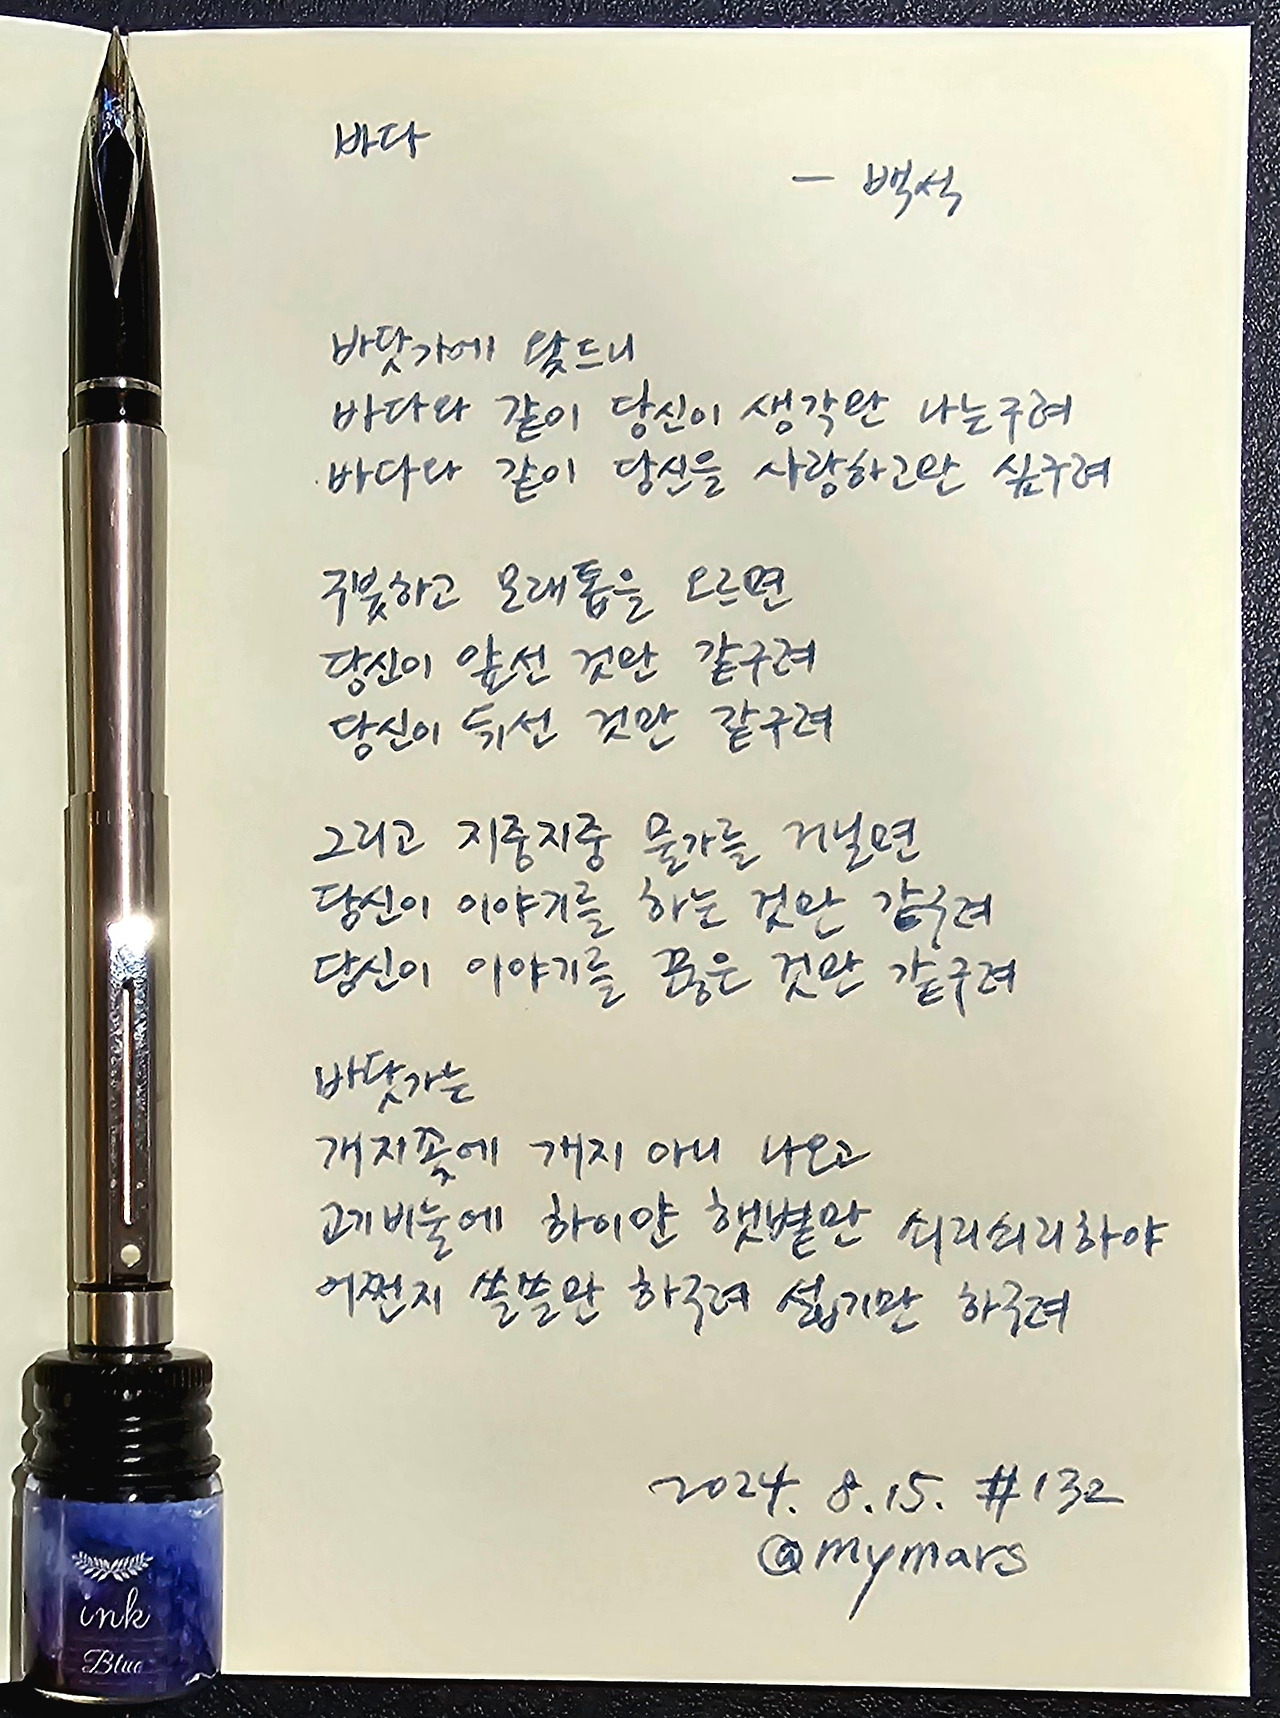 바다
- 백석
바닷가에 왔드니
바다와 같이 당신이 생각만 나는구려
바다와 같이 당신을 사랑하고만 싶구려
구붓하고 모래톱을 오르면
당신이 앞선 것만 같구려
당신이 뒤선 것만 같구려
그리고 지중지중 물가를 거닐면
당신이 이야기를 하는 것만 같구려
당신이 이야기를 끊은 것만 같구려
바닷가는
개지꽃에 개지 아니 나오고
고기비눌에 하이얀 햇볕만 쇠리쇠리하야
어쩐지 쓸쓸만 하구려 섧기만 하구려
2024. 8. 15. #132
@mymars
ink
Blue